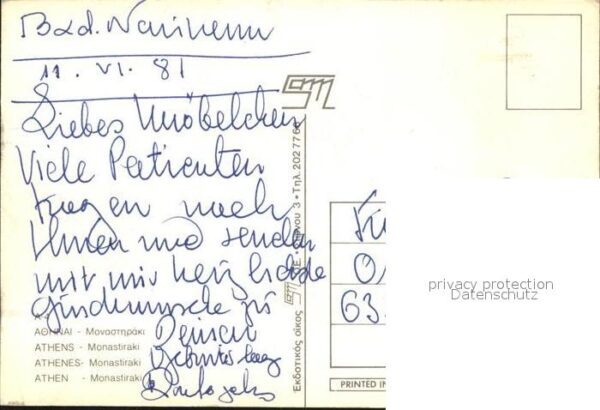 Bad. Nauheim
11. VI. 81
Liebes Knöbelchen
Viele Patienten
fragen nach
Ihnen und senden
mit mir herzlichste
Glückwünsche zu
Deinem
Geburtstag
ΑΘΗΝΑΙ - Μοναστηράκι
ATHENS - Monastiraki
ATHENES- Monastiraki
ATHEN - Monastiraki
Εκδοτικός οίκος
3 • Τηλ. 202 77 68
63
PRINTED IN
privacy protection
Datenschutz